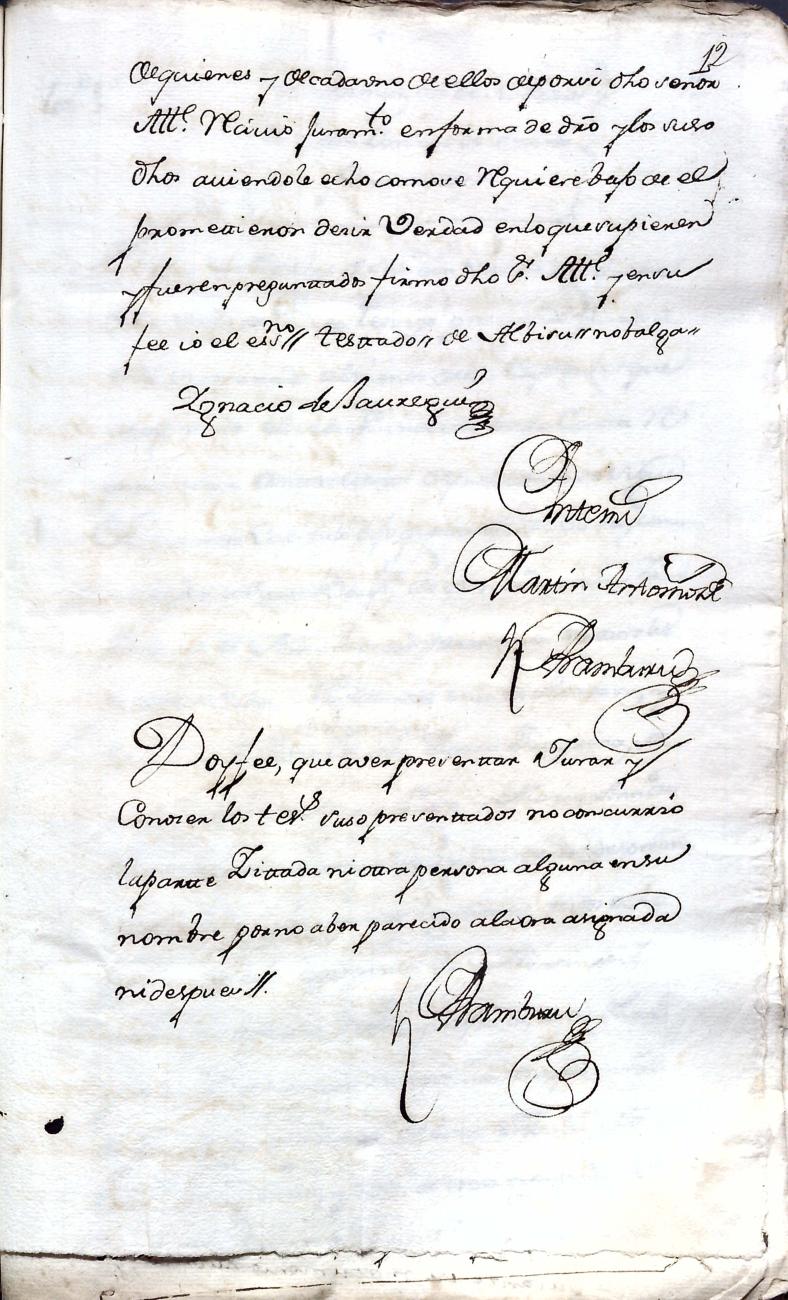 12
de quienes y de cada uno de ellos de por si dho señor
Altte. Recivio Juramto. en forma de dro y los suso
dhos aviendole echo como se Requiere baso de el
promettieron desir Verdad en lo que supieren
y fueren preguntados firmo dho Sr. Altte. y en su
fee io el essno// testtado// de Albisu// no balga//
Ygnacio de Jauregui
Antemi
Martin Antonio de
Aramburu
Doy fee, que a ver presenttar Jurar y
Conoser los tesgs. suso presenttados no concurrio
la partte Zittada ni ottra persona alguna en su
nombre por no aber parecido a la ora asignada
ni despues//.
Aramburu